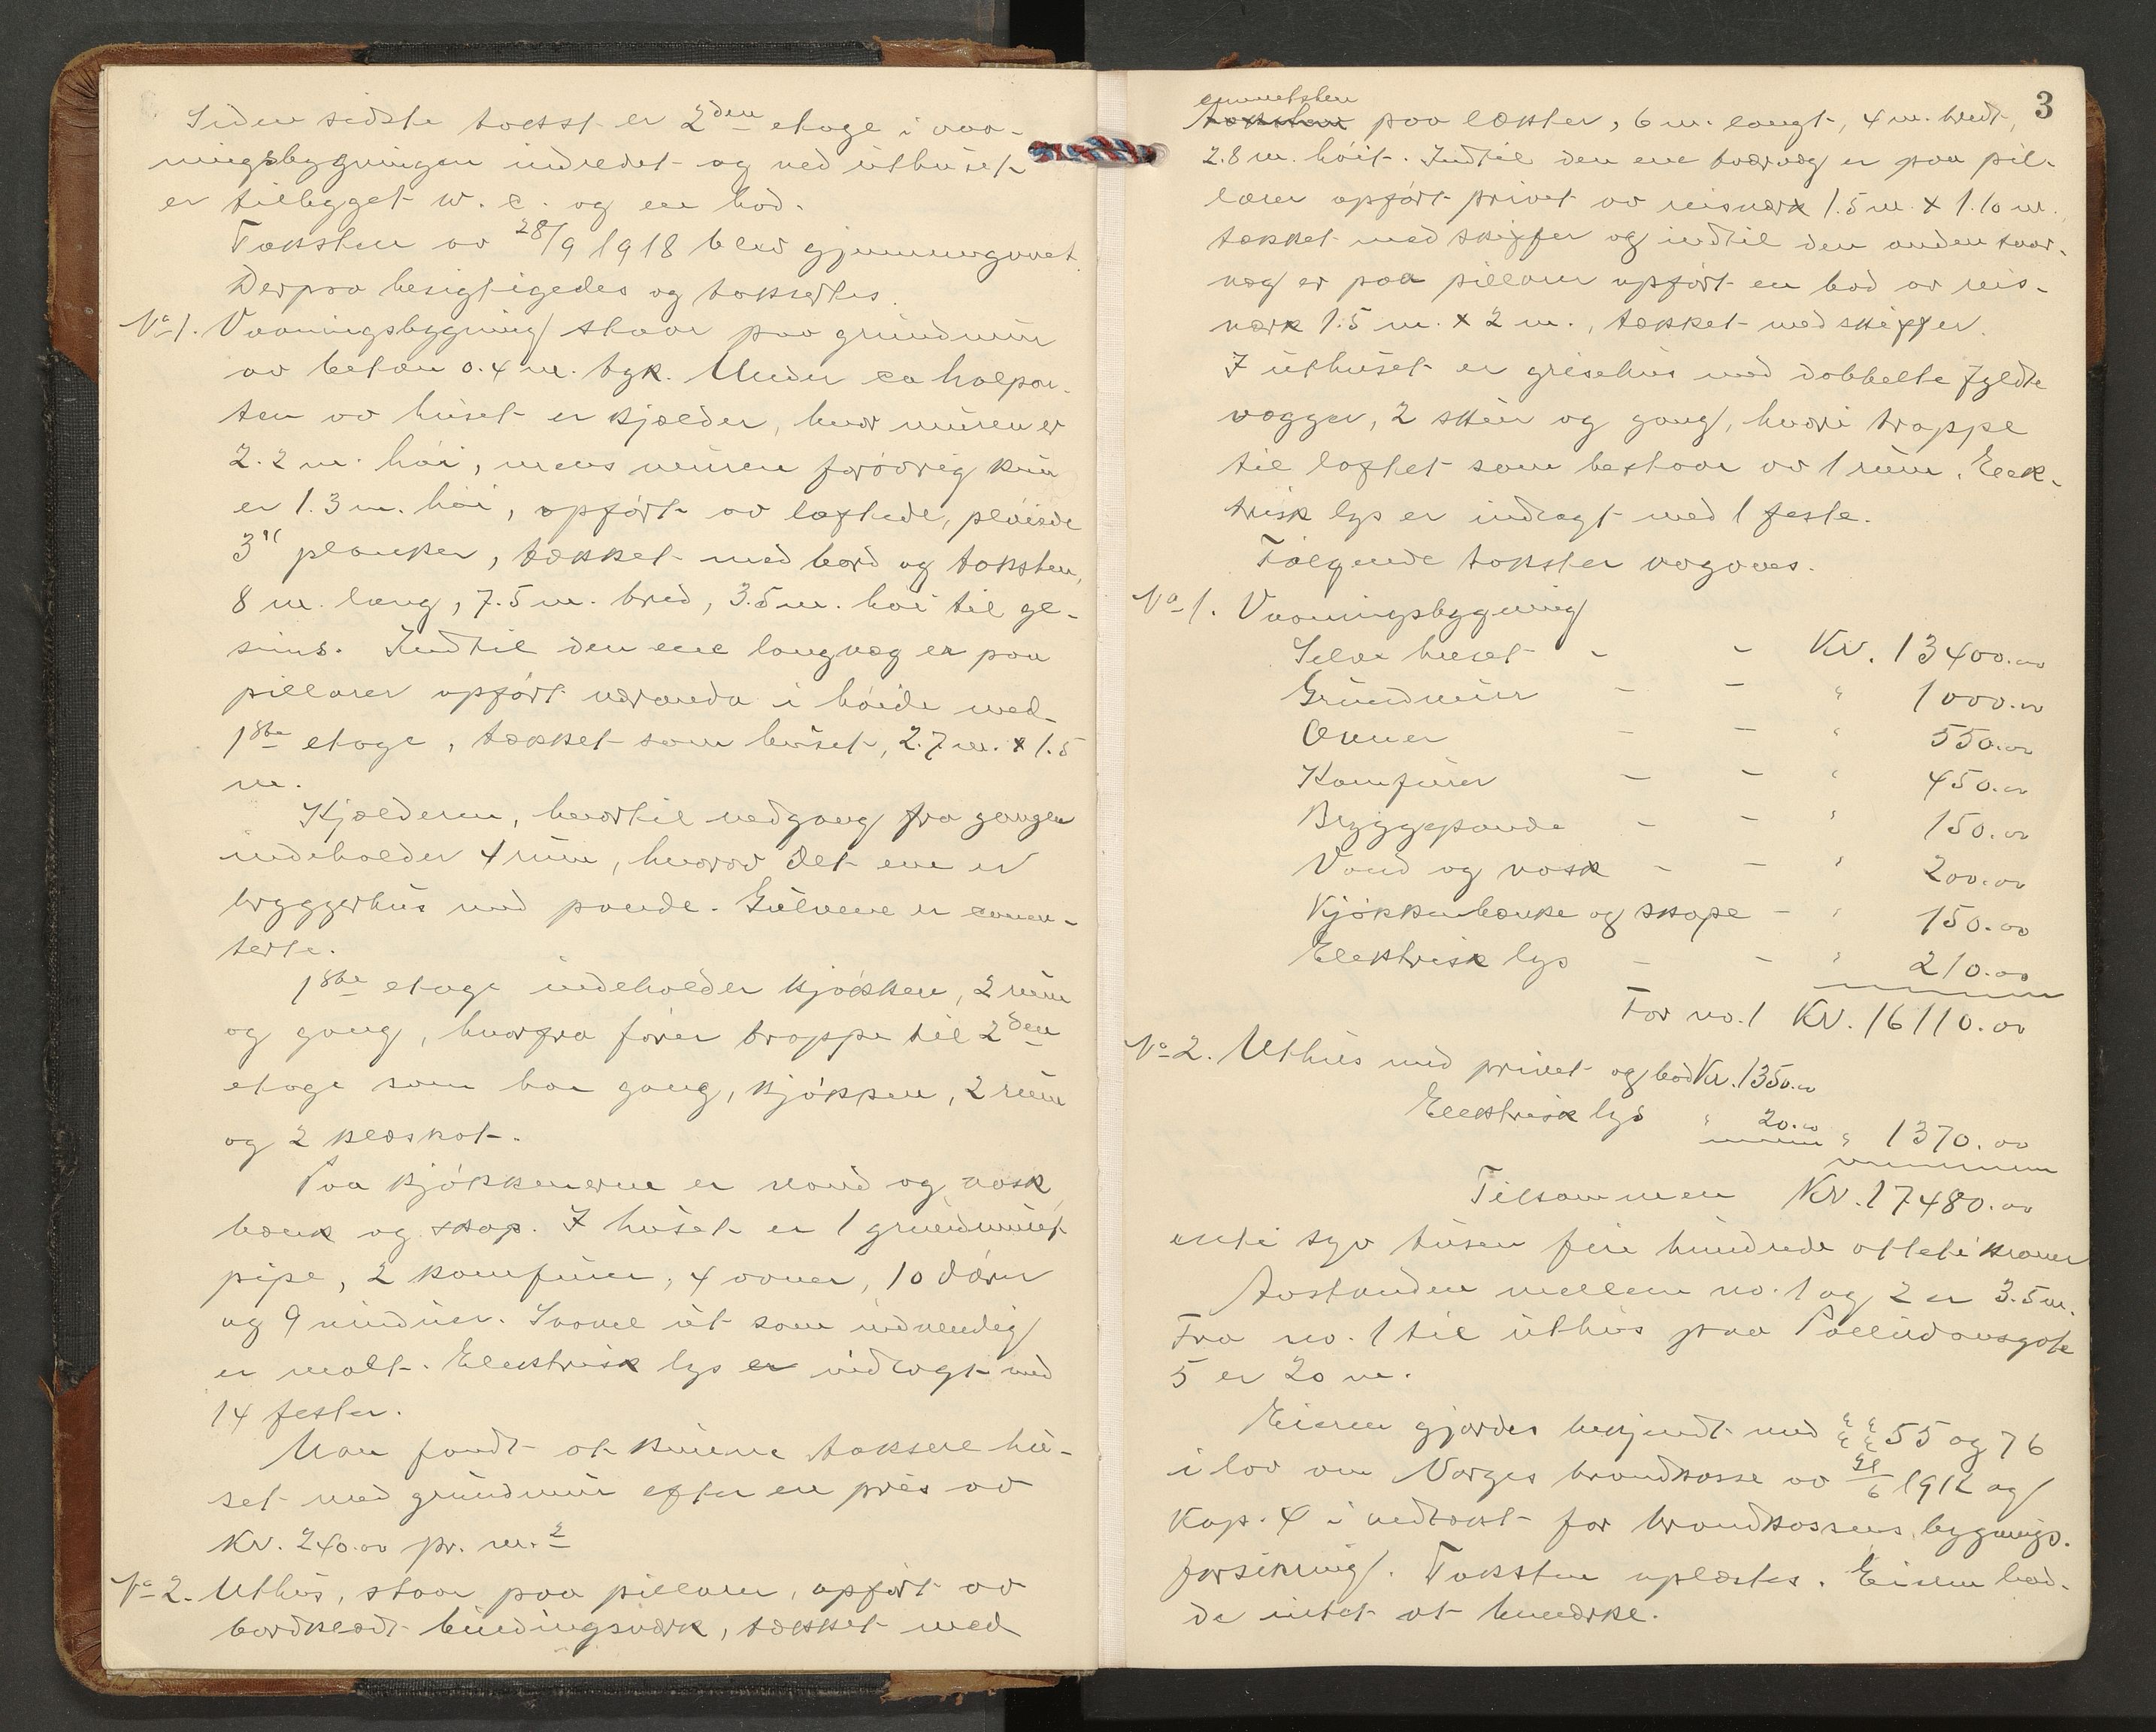 Siden sidste takst er 2den etage i vaa-
ningsbygningen indredet og ved uthuset
er tilbygget w. c. og en bod.
Taksten av 28/9 1918 blev gjennemgaaet.
Derpaa besigtigedes og taksertes.
No 1. Vaaningsbygning staar paa grundmur
av beton 0.4 m. tyk. Under ca halvpar-
ten av huset er kjælder, hvor muren er
2.2 m. høi, mens muren forøvrig kun
er 1.3 m. høi, opført av laftede, pløiede
3" planker, tækket med bord og taksten,
8 m. lang, 7.5 m. bred, 3.5 m. høi til ge-
sims. Indtil den ene langvæg er paa
pillarer opført veranda i høide med
1ste etage, tækket som huset, 2.7 m. x 1.5
m.
Kjælderen, hvortil nedgang fra gangen
indeholder 4 rum, hvorav det ene er
bryggerhus med pande. Gulvene er cemen-
terte.
1ste etage indeholder kjøkken, 2 rum
og gang, hvorfra fører trappe til 2den
etage som har gang, kjøkken, 2 rum
og 2 klæskot.
Paa kjøkkenerne er vand og vask
bænk og skap. I huset er 1 grundmuret
pipe, 2 komfurer, 4 ovner, 10 dører
og 9 vinduer. Saavel ut som indvendig
er malt. Elektrisk lys er indlagt med
14 fester.
Man fandt at kunne taksere hu-
set med grundmur efter en pris av
Kr. 240.00 pr. m.2
No 2. Uthus, staar paa pillarer, opført av
bordklædt bindingsværk, tækket med
3
cementsten
taksten paa lækter, 6 m. langt, 4 m. bredt,
2.8 m. høit. Indtil den ene tværvæg er paa pil-
larer opført privet av reisværk 1.5 m. x 1.10 m.
tækket med skiffer og indtil den anden tvær-
væg er paa pillarer opført en bod av reis-
værk 1.5 m. x 2 m., tækket med skiffer.
I uthuset er grisehus med dobbelte fyldte
vægger, 2 skur og gang, hvori trappe
til loftet som bestaar av 1 rum. Elek-
trisk lys er indlagt med 1 feste.
Følgende takster avgaves.
No 1. Vaaningsbygning
Selve huset - - Kr. 13400.00
Grundmur - - " 1000.00
Ovner - - " 550.00
Komfurer - - " 450.00
Bryggepande - - " 150.00
Vand og vask - - " 200.00
Kjøkkenbænke og skape - " 150.00
Elektrisk lys - - " 210.00
For no. 1 Kr. 16110.00
No 2. Uthus med privet og bod Kr. 1350.00
Elektrisk lys " 20.00 " 1370.00
Tilsammen Kr. 17480.00
sytti syv tusen fire hundrede otteti kroner
Avstanden mellem no. 1 og 2 er 3.5 m.
Fra no. 1 til uthus paa Paludansgate
5 er 20 m.
Eieren gjordes bekjendt med §§ 55 og 76
i lov om Norges brandkasse av 21/6 1912 og
Kap. 4 i vedtækt for brandkassens bygnings-
forsikring. Taksten oplæstes. Eieren had-
de intet at bemærke.